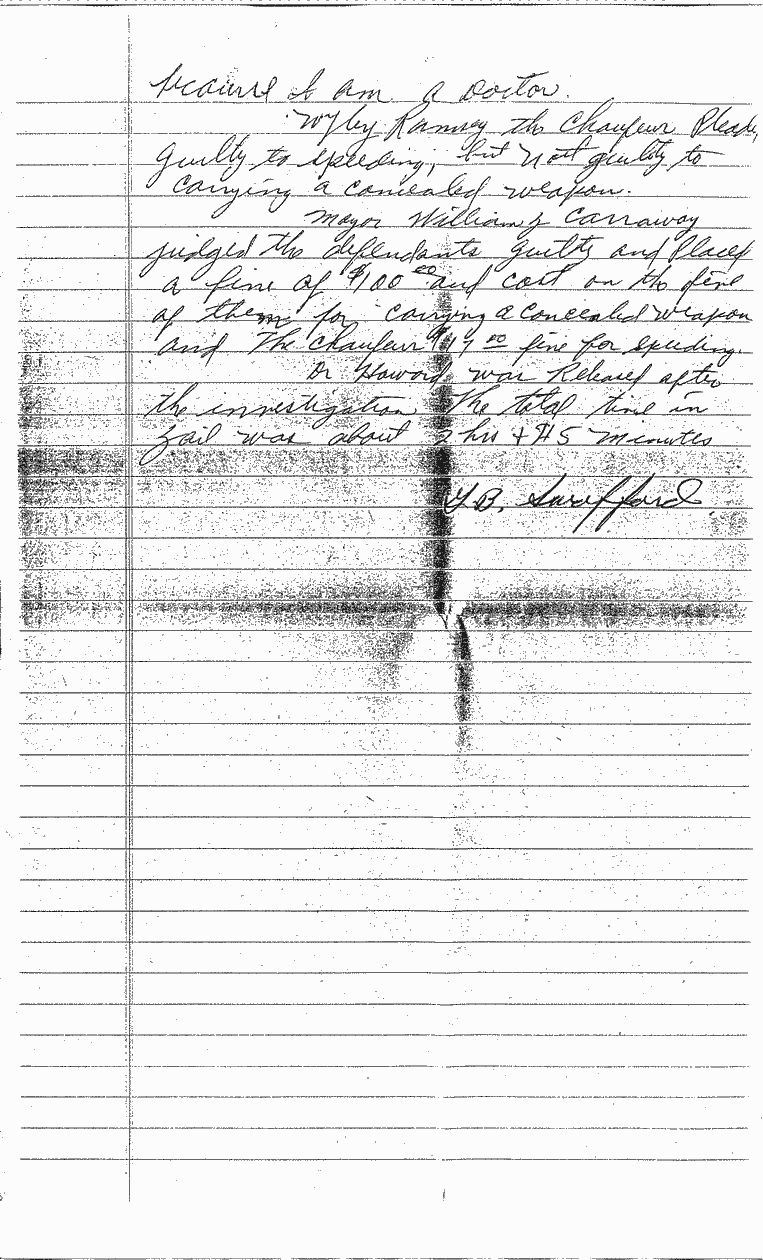 because I am a Doctor.
Wyley Ramsey the Chaufeur Pleads
guilty to speeding, but Not guilty to
carrying a concealed weapon.
Mayor William Z Carraway
judged the defendants guilty and Placed
a fine of $100 00 and cost on the five
of them for carrying a concealed weapon
and The Chaufeur $17 00 fine for speeding.
Dr Howard was Released after
the investigation The total time in
jail was about 2 hrs + 45 minutes